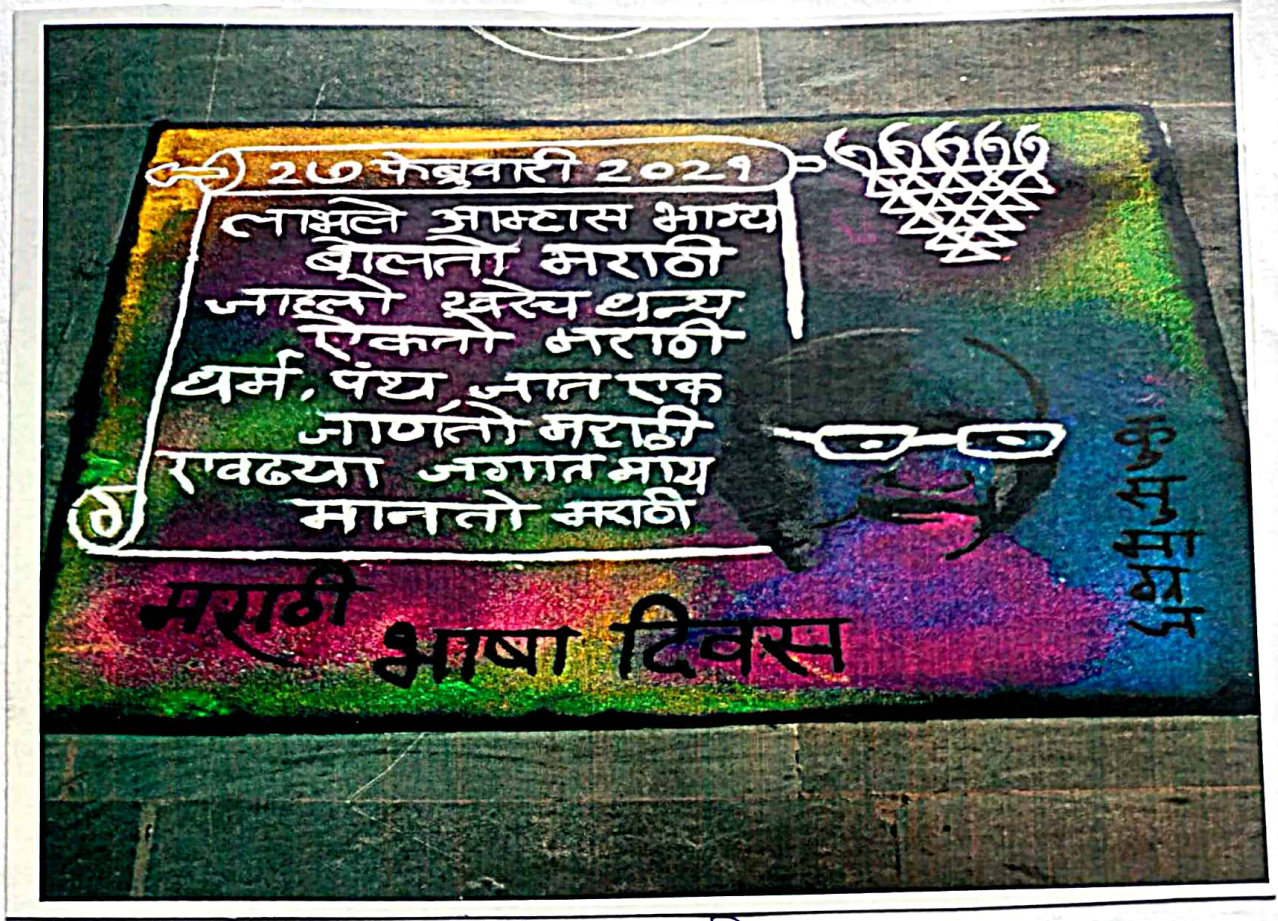 २७ फेब्रुवारी २०२१
लाभले आम्हास भाग्य
बोलतो मराठी
जाहलो खरेच धन्य
ऐकतो मराठी
धर्म, पंथ, जात एक
जाणतो मराठी
एवढ्या जगात माय
मानतो मराठी
मराठी
भाषा दिवस